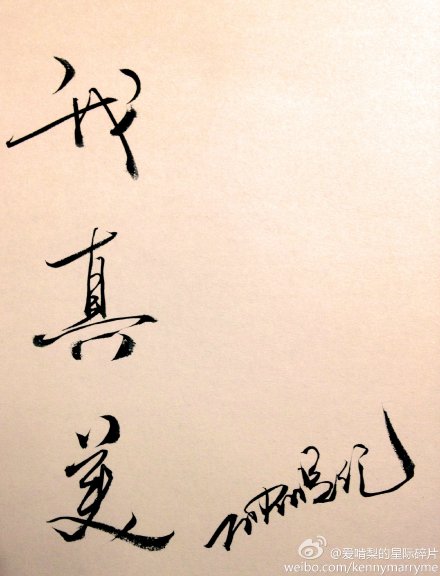 我
真
美
@爱啃梨的星际碎片
weibo.com/kennymarryme